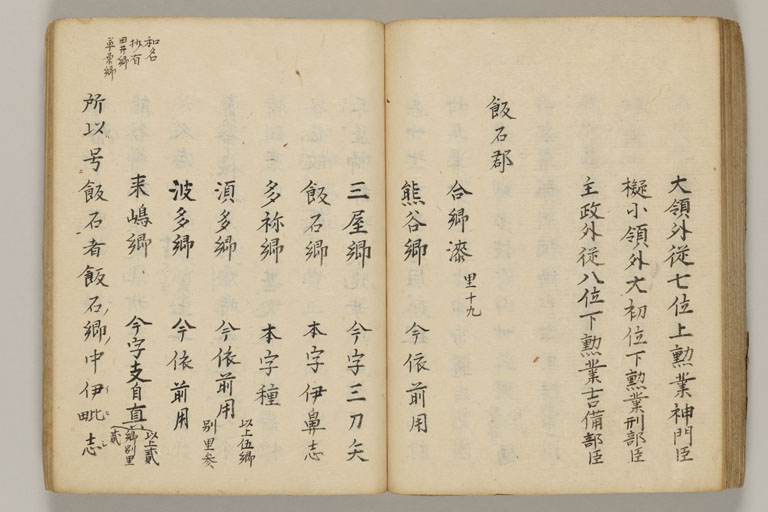 大領外従七位上勲業神門臣
擬小領外大初位下勲業刑部臣
主政外従八位下勲業吉備部臣
飯石郡
合郷漆 里十九
熊谷郷 今依前用
三屋郷 今字三刀矢
飯石郷 本字伊鼻志
多祢郷 本字種
湏多郷 今依前用 以上伍郷
別里参
波多郷 今依前用
来嶋郷 今字支自真 以上貳
郷別里
貳
所以号飯石者飯石郷中伊毗志
和名
抄有
田井郷
草原郷